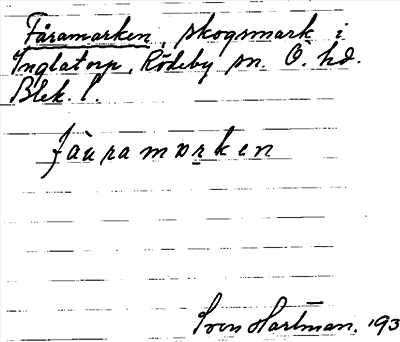 Fåramarken, skogsmark i
Inglatorp, Rödeby sn. Ö. hd.
Blek. l.
fàuramɒrken
Sven Hartman. '193